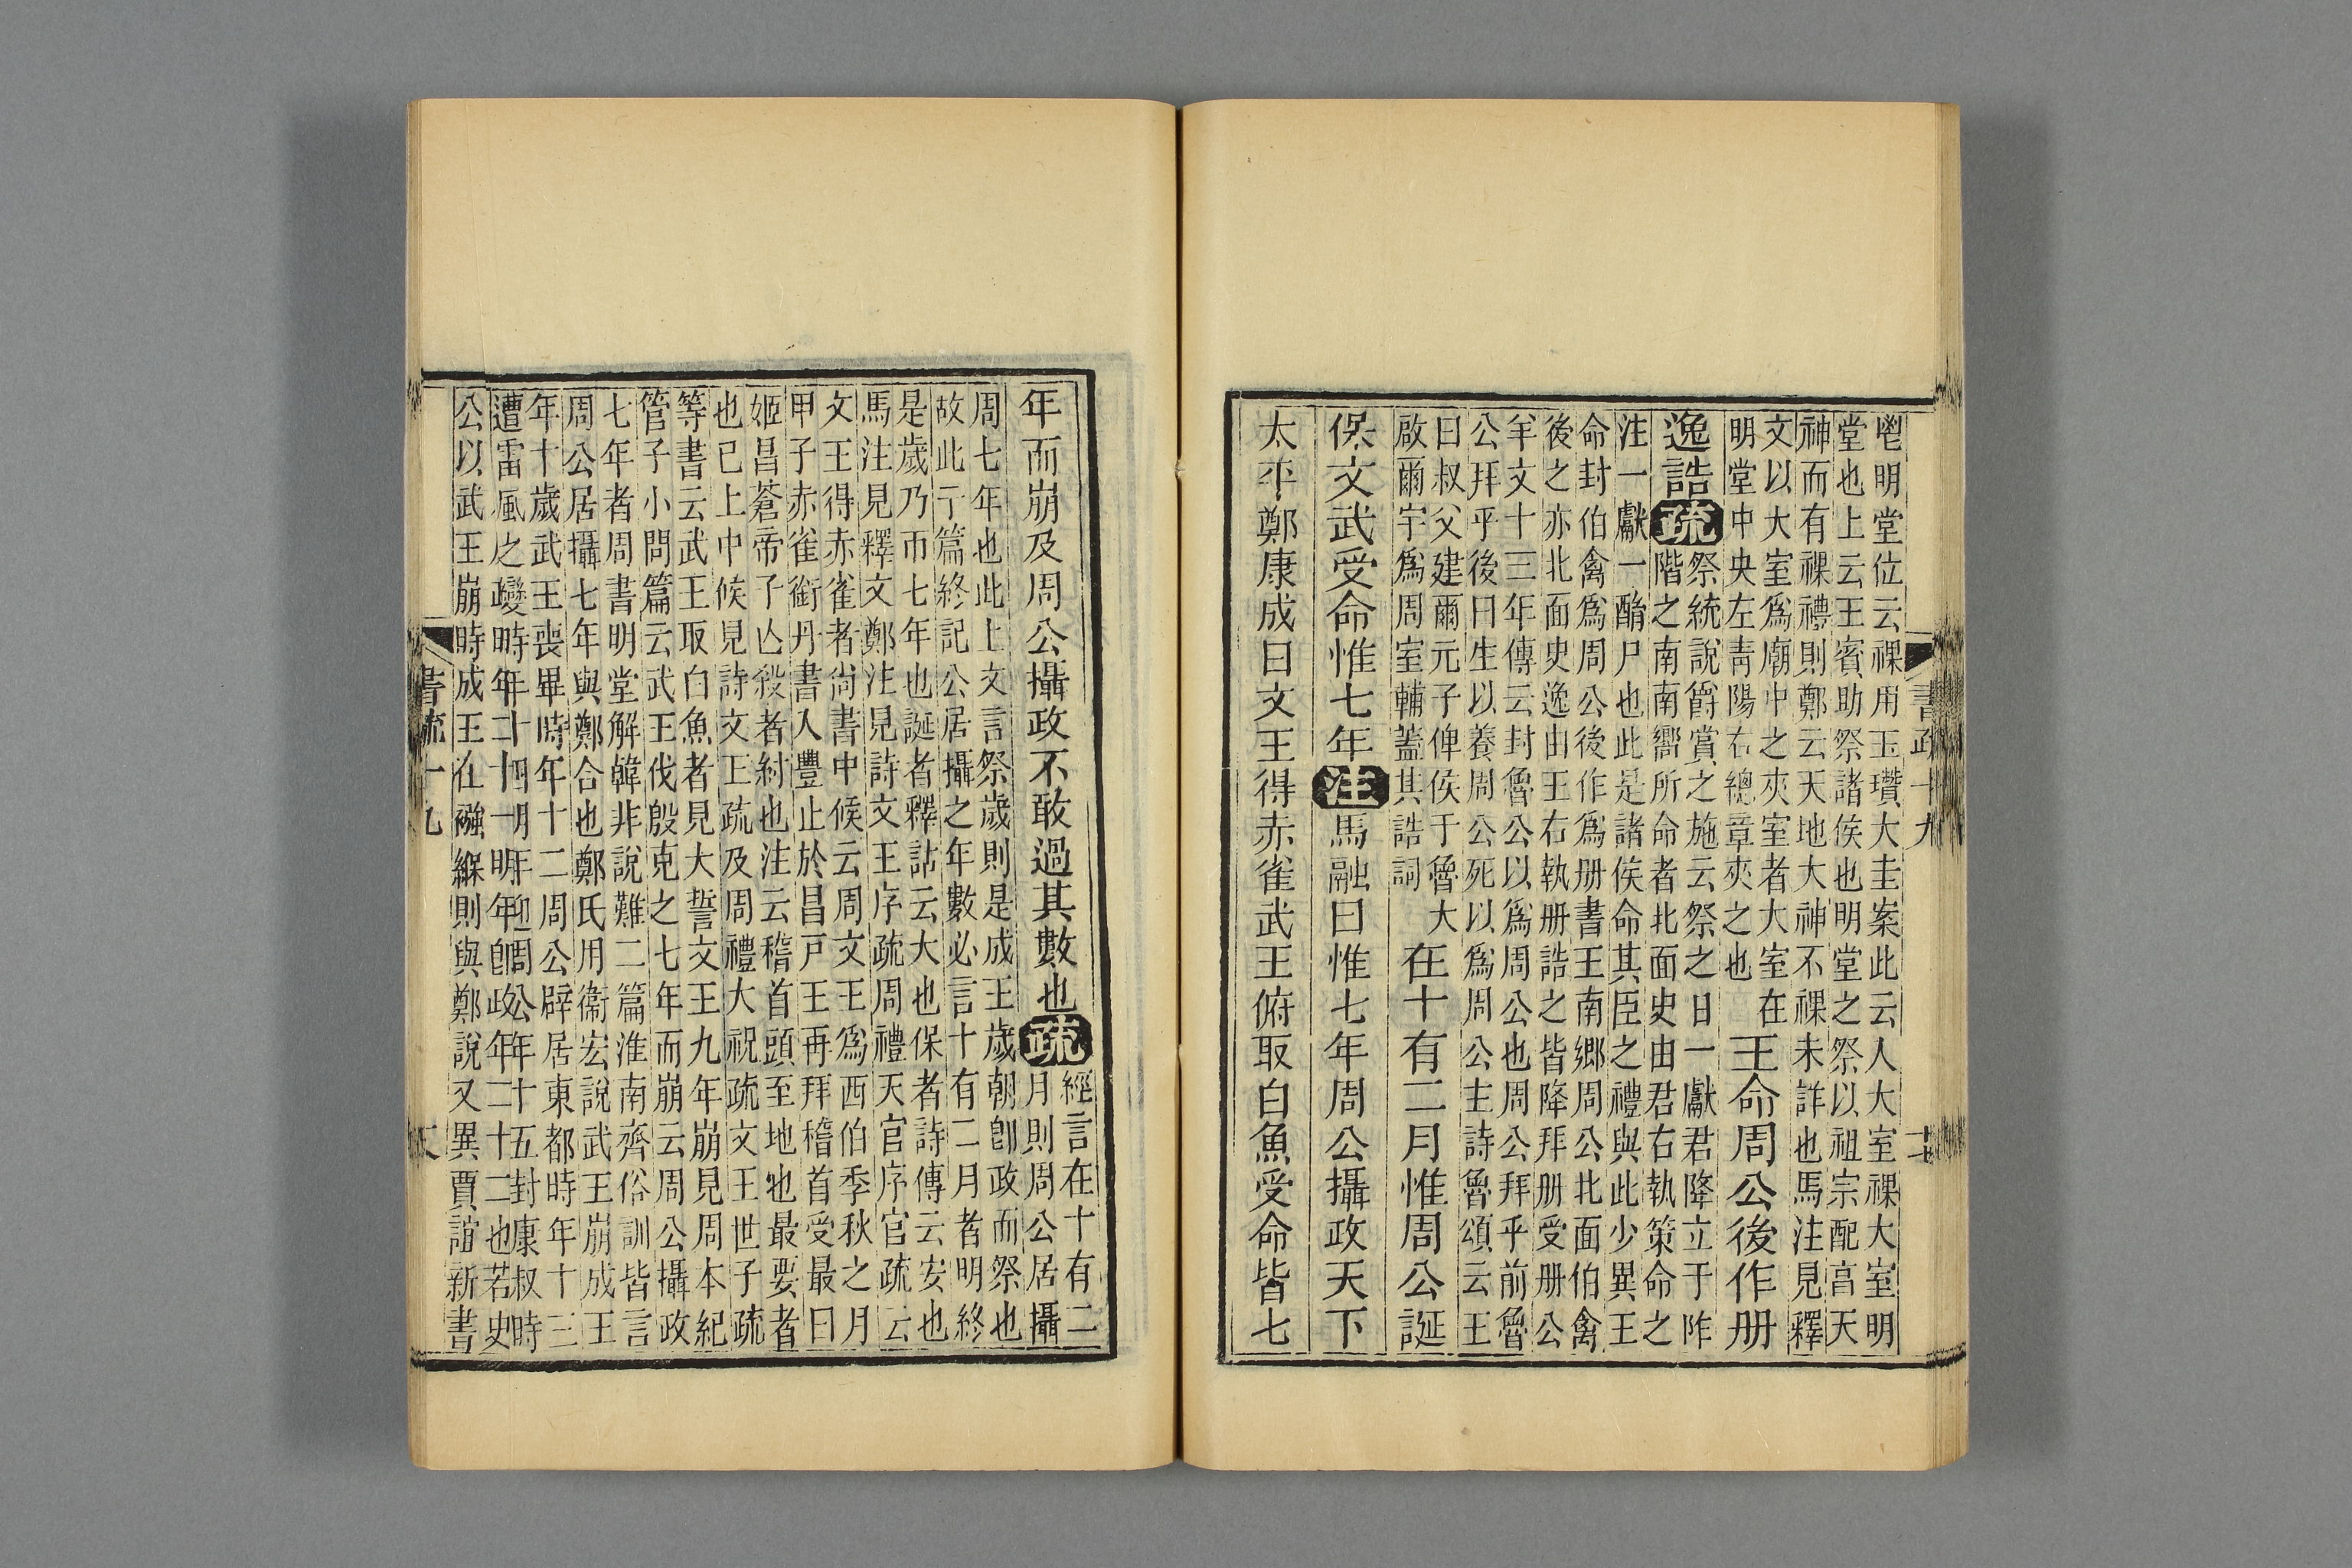 書疏十九 十七
鬯明堂位云祼用玉瓚大圭案此云人大室祼大室明
堂也上云王賓助祭諸侯也明堂之祭以祖宗配高天
神而有祼禮則鄭云天地大神不祼未詳也馬注見釋
文以大室爲廟中之夾室者大室在
明堂中央左靑陽右總章夾之也
王命周公後作册
逸誥疏
祭統說爵賞之施云祭之日一獻君降立于阼
階之南南嚮所命者北面史由君右執策命之
注一獻一酳尸也此是諸侯命其臣之禮與此少異王
命封伯禽爲周公後作爲册書王南鄉周公北面伯禽
後之亦北面史逸由王右執册誥之皆降拜册受册公
羊文十三年傳云封魯公以爲周公也周公拜乎前魯
公拜乎後曰生以養周公死以爲周公主詩魯頌云王
曰叔父建爾元子俾侯于魯大
啟爾宇爲周室輔蓋其誥詞
在十有二月惟周公誕
保文武受命惟七年注馬融曰惟七年周公攝政天下
太平鄭康成曰文王得赤雀武王俯取白魚受命皆七
年而崩及周公攝政不敢過其數也疏
經言在十有二
月則周公居攝
周七年也此上文言祭歲則是成王歲朝卽政而祭也
故此于篇終記公居攝之年數必言十有二月者明終
是歲乃而七年也誕者釋詁云大也保者詩傳云安也
馬注見釋文鄭注見詩文王序疏周禮天官序官疏云
文王得赤雀者尙書中候云周文王爲西伯季秋之月
甲子赤雀銜丹書入豐止於昌戸王再拜稽首受最曰
姬昌蒼帝子亾殺者紂也注云稽首頭至地也最要者
也已上中候見詩文王疏及周禮大祝疏文王世子疏
等書云武王取白魚者見大誓文王九年崩見周本紀
管子小問篇云武王伐殷克之七年而崩云周公攝政
七年者周書明堂解韓非說難二篇淮南齊俗訓皆言
周公居攝七年與鄭合也鄭氏用衞宏說武王崩成王
年十歲武王喪畢時年十二周公辟居東都時年十三
遭雷風之變時年十四明年迎周公年十五封康叔時
年二十一明年卽政年二十二也若史
公以武王崩時成王在襁緥則與鄭說又異賈誼新書
書疏十九